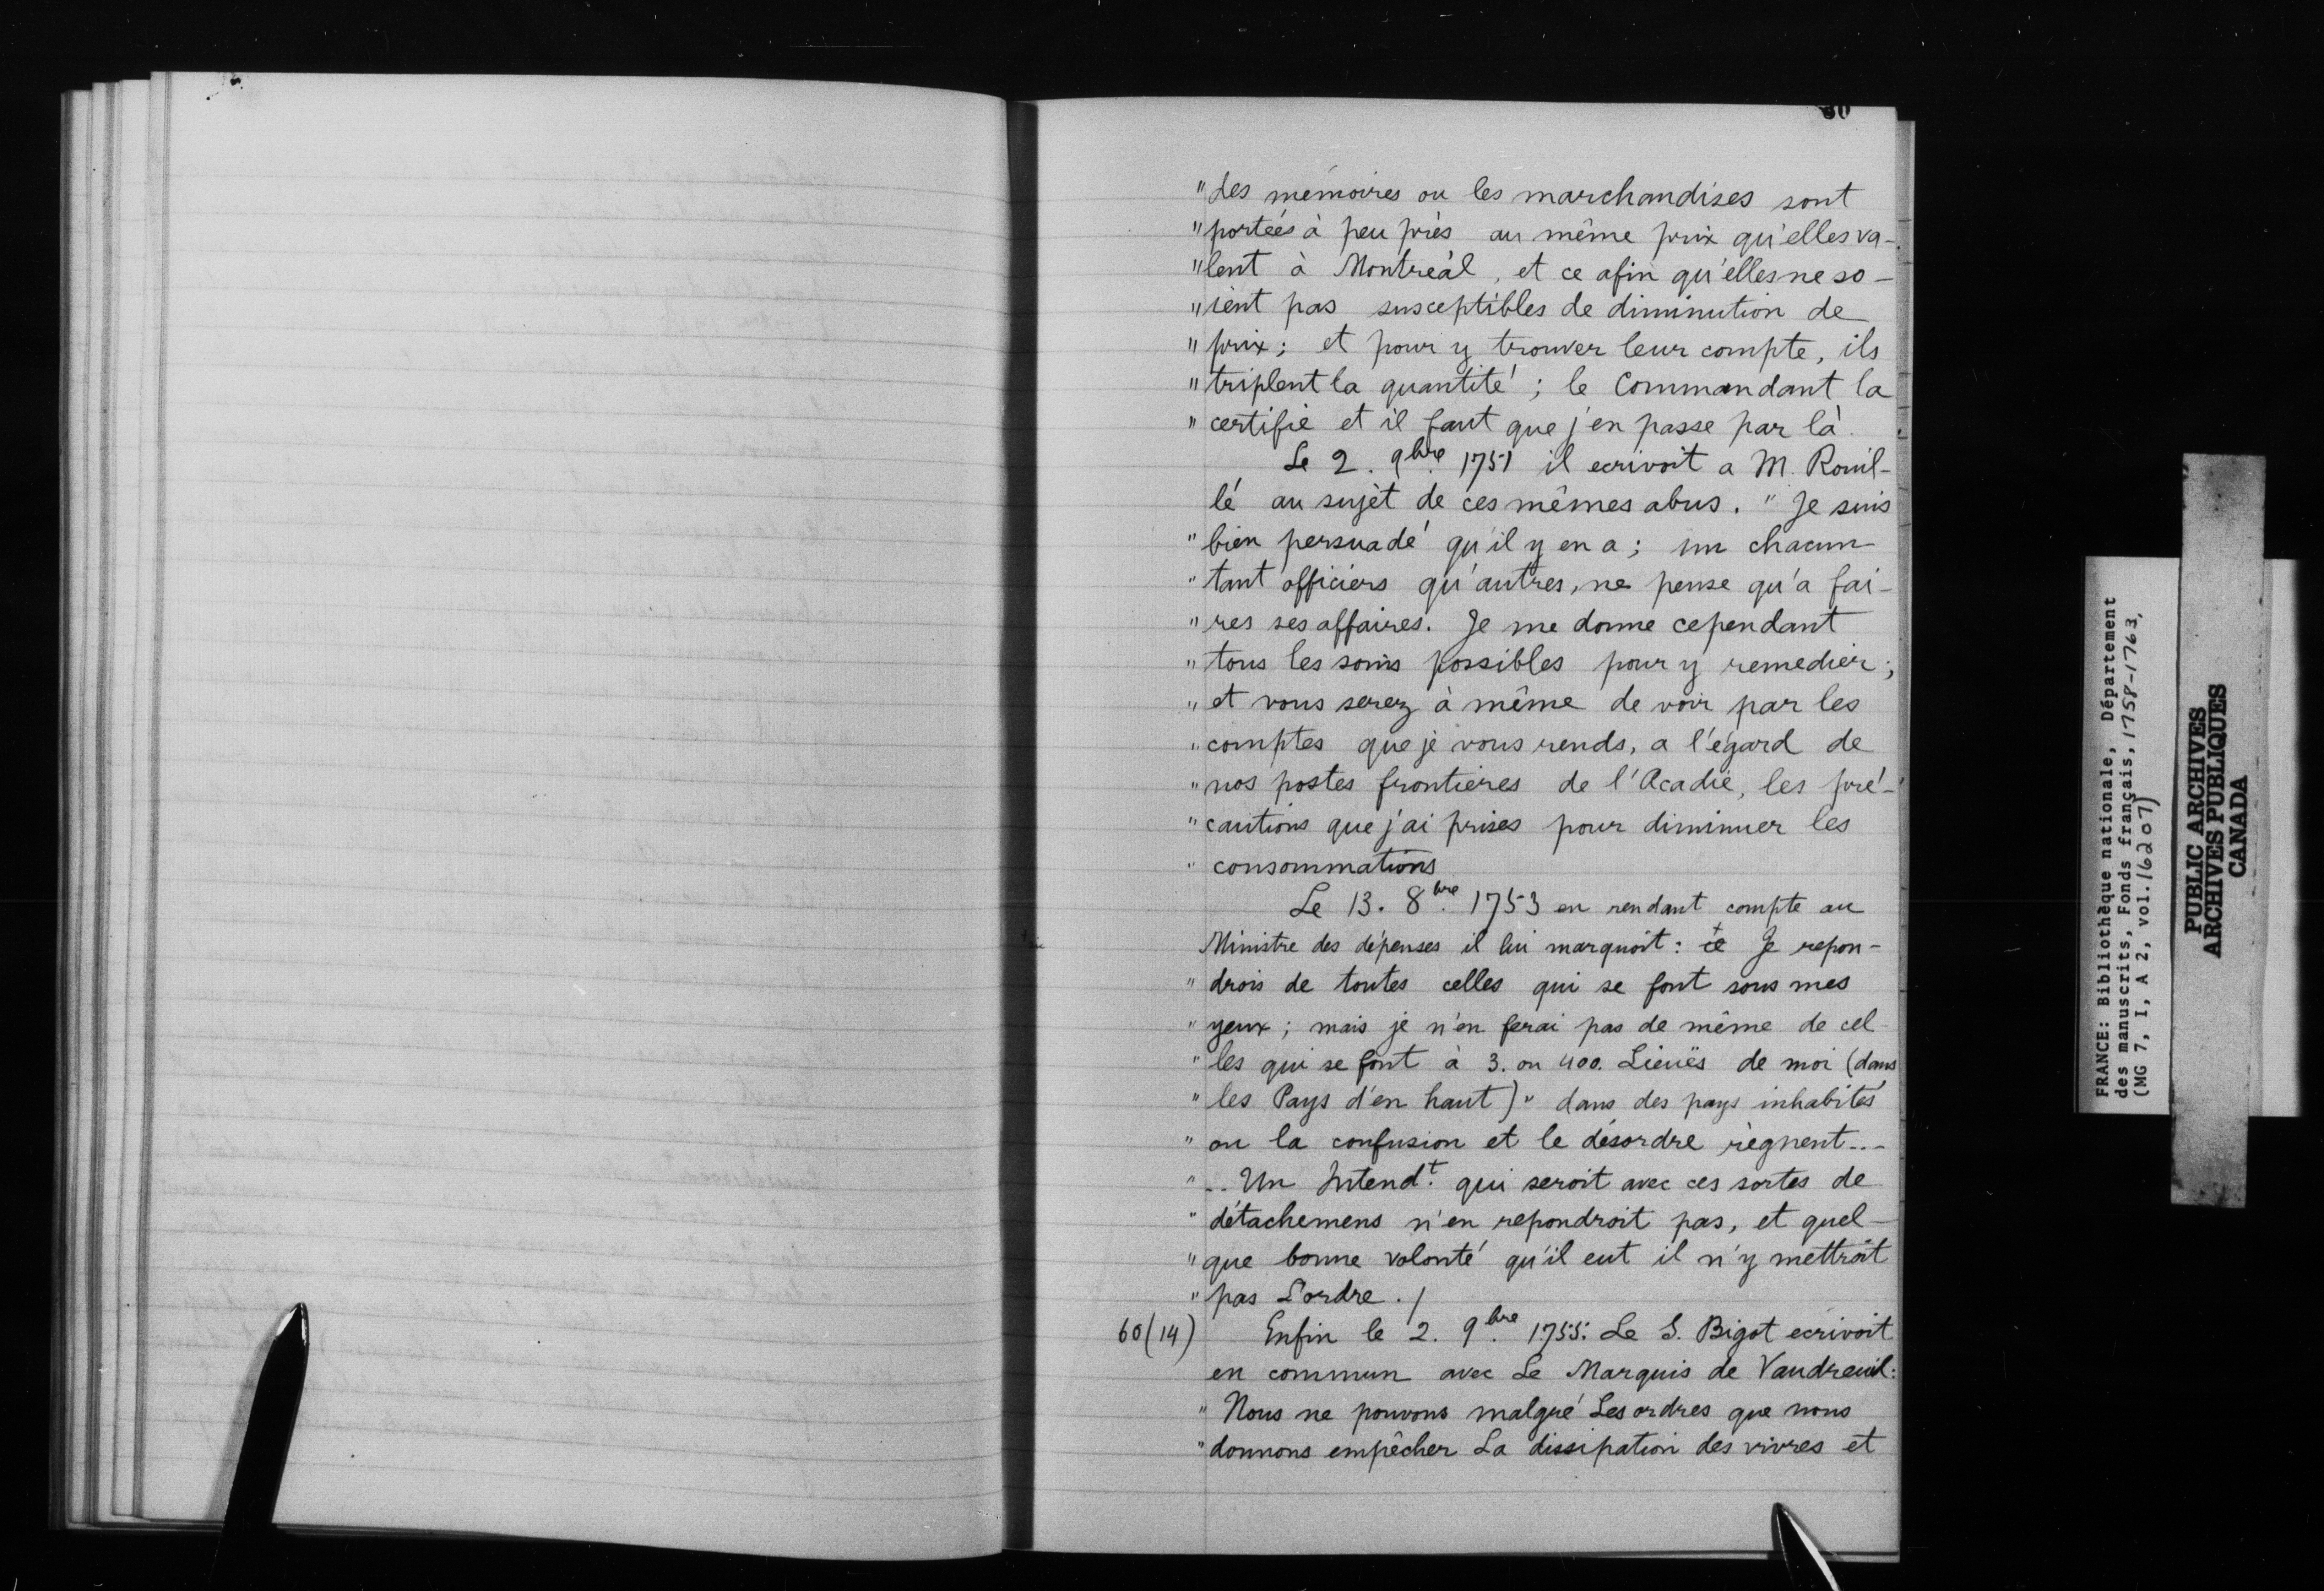 " Les mémoires ou les marchandises sont
" portées à peu près au même prix qu'elles va-
" lent à Montréal, et ce afin qu'elles ne so-
" ient pas susceptibles de diminution de
" prix; et pour y trouver leur compte, ils
" triplent la quantité; le Commandant la
" certifie et il faut que j'en passe par là.
Le 2. 9bre 1751 il ecrivoit a M. Rouil-
lé au sujèt de ces mêmes abus. " Je suis
" bien persuadé qu'il y en a; un chacun
" tant officiers qu'autres, ne pense qu'a fai-
" res ses affaires. Je me donne cependant
" tous les soins possibles pour y remedier;
" et vous serez à même de voir par les
" comptes que je vous rends, a l'égard de
" nos postes frontieres de l'Acadie, les pré-
" cautions que j'ai prises pour diminuer les
" consommations
Le 13. 8bre 1753 en rendant compte au
Ministre des dépenses il lui marquoit: Je repon-
" drois de toutes celles qui se font sous mes
" yeux; mais je n'en ferai pas de même de cel-
" les qui se font à 3. ou 400. Lieuës de moi (dans
" les Pays d'en haut) " dans des pays inhabités
" ou la confusion et le désordre règnent...
" .. Un Intendt. qui seroit avec ces sortes de
" détachemens n'en repondroit pas, et quel-
" que bonne volonté qu'il eut il n'y mettroit
" pas L'ordre. /
60 (14) Enfin le 2. 9bre 1755. Le S. Bigot ecrivoit
en commun avec Le Marquis de Vaudreuil:
" Nous ne pouvons malgré Les ordres que nous
" donnons empêcher La dissipation des vivres et
FRANCE: Bibliothèque nationale, Département
des manuscrits, Fonds français, 1758-1763,
(MG 7, I, A 2, vol. 16207)
PUBLIC ARCHIVES
ARCHIVES PUBLIQUES
CANADA